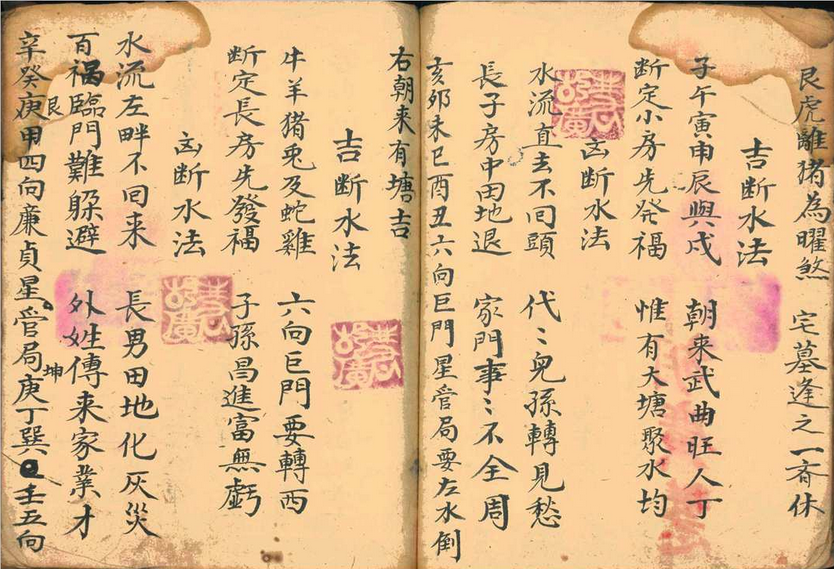 艮虎離猪為曜煞 宅墓逢之一斉休
吉断水法
子午寅申辰與戌 朝来武曲旺人丁
断定小房先発福 惟有大塘聚水均
凶断水法
水流直去不囘頭 代〻皃孫轉見愁
長子房中田地退 家門事〻不全周
亥卯未巳酉丑六向巨門星管局要左水倒
右朝来有塘吉
吉断水法
牛羊猪兎及蛇雞 六向巨門要轉西
断定長房先發福 子孫昌進富無虧
凶断水法
水流左畔不囘来 長男田地化灰災
百禍臨門難躲避 外姓傳来家業才
辛癸艮庚甲四向廉貞星管局坤庚丁巽壬五向